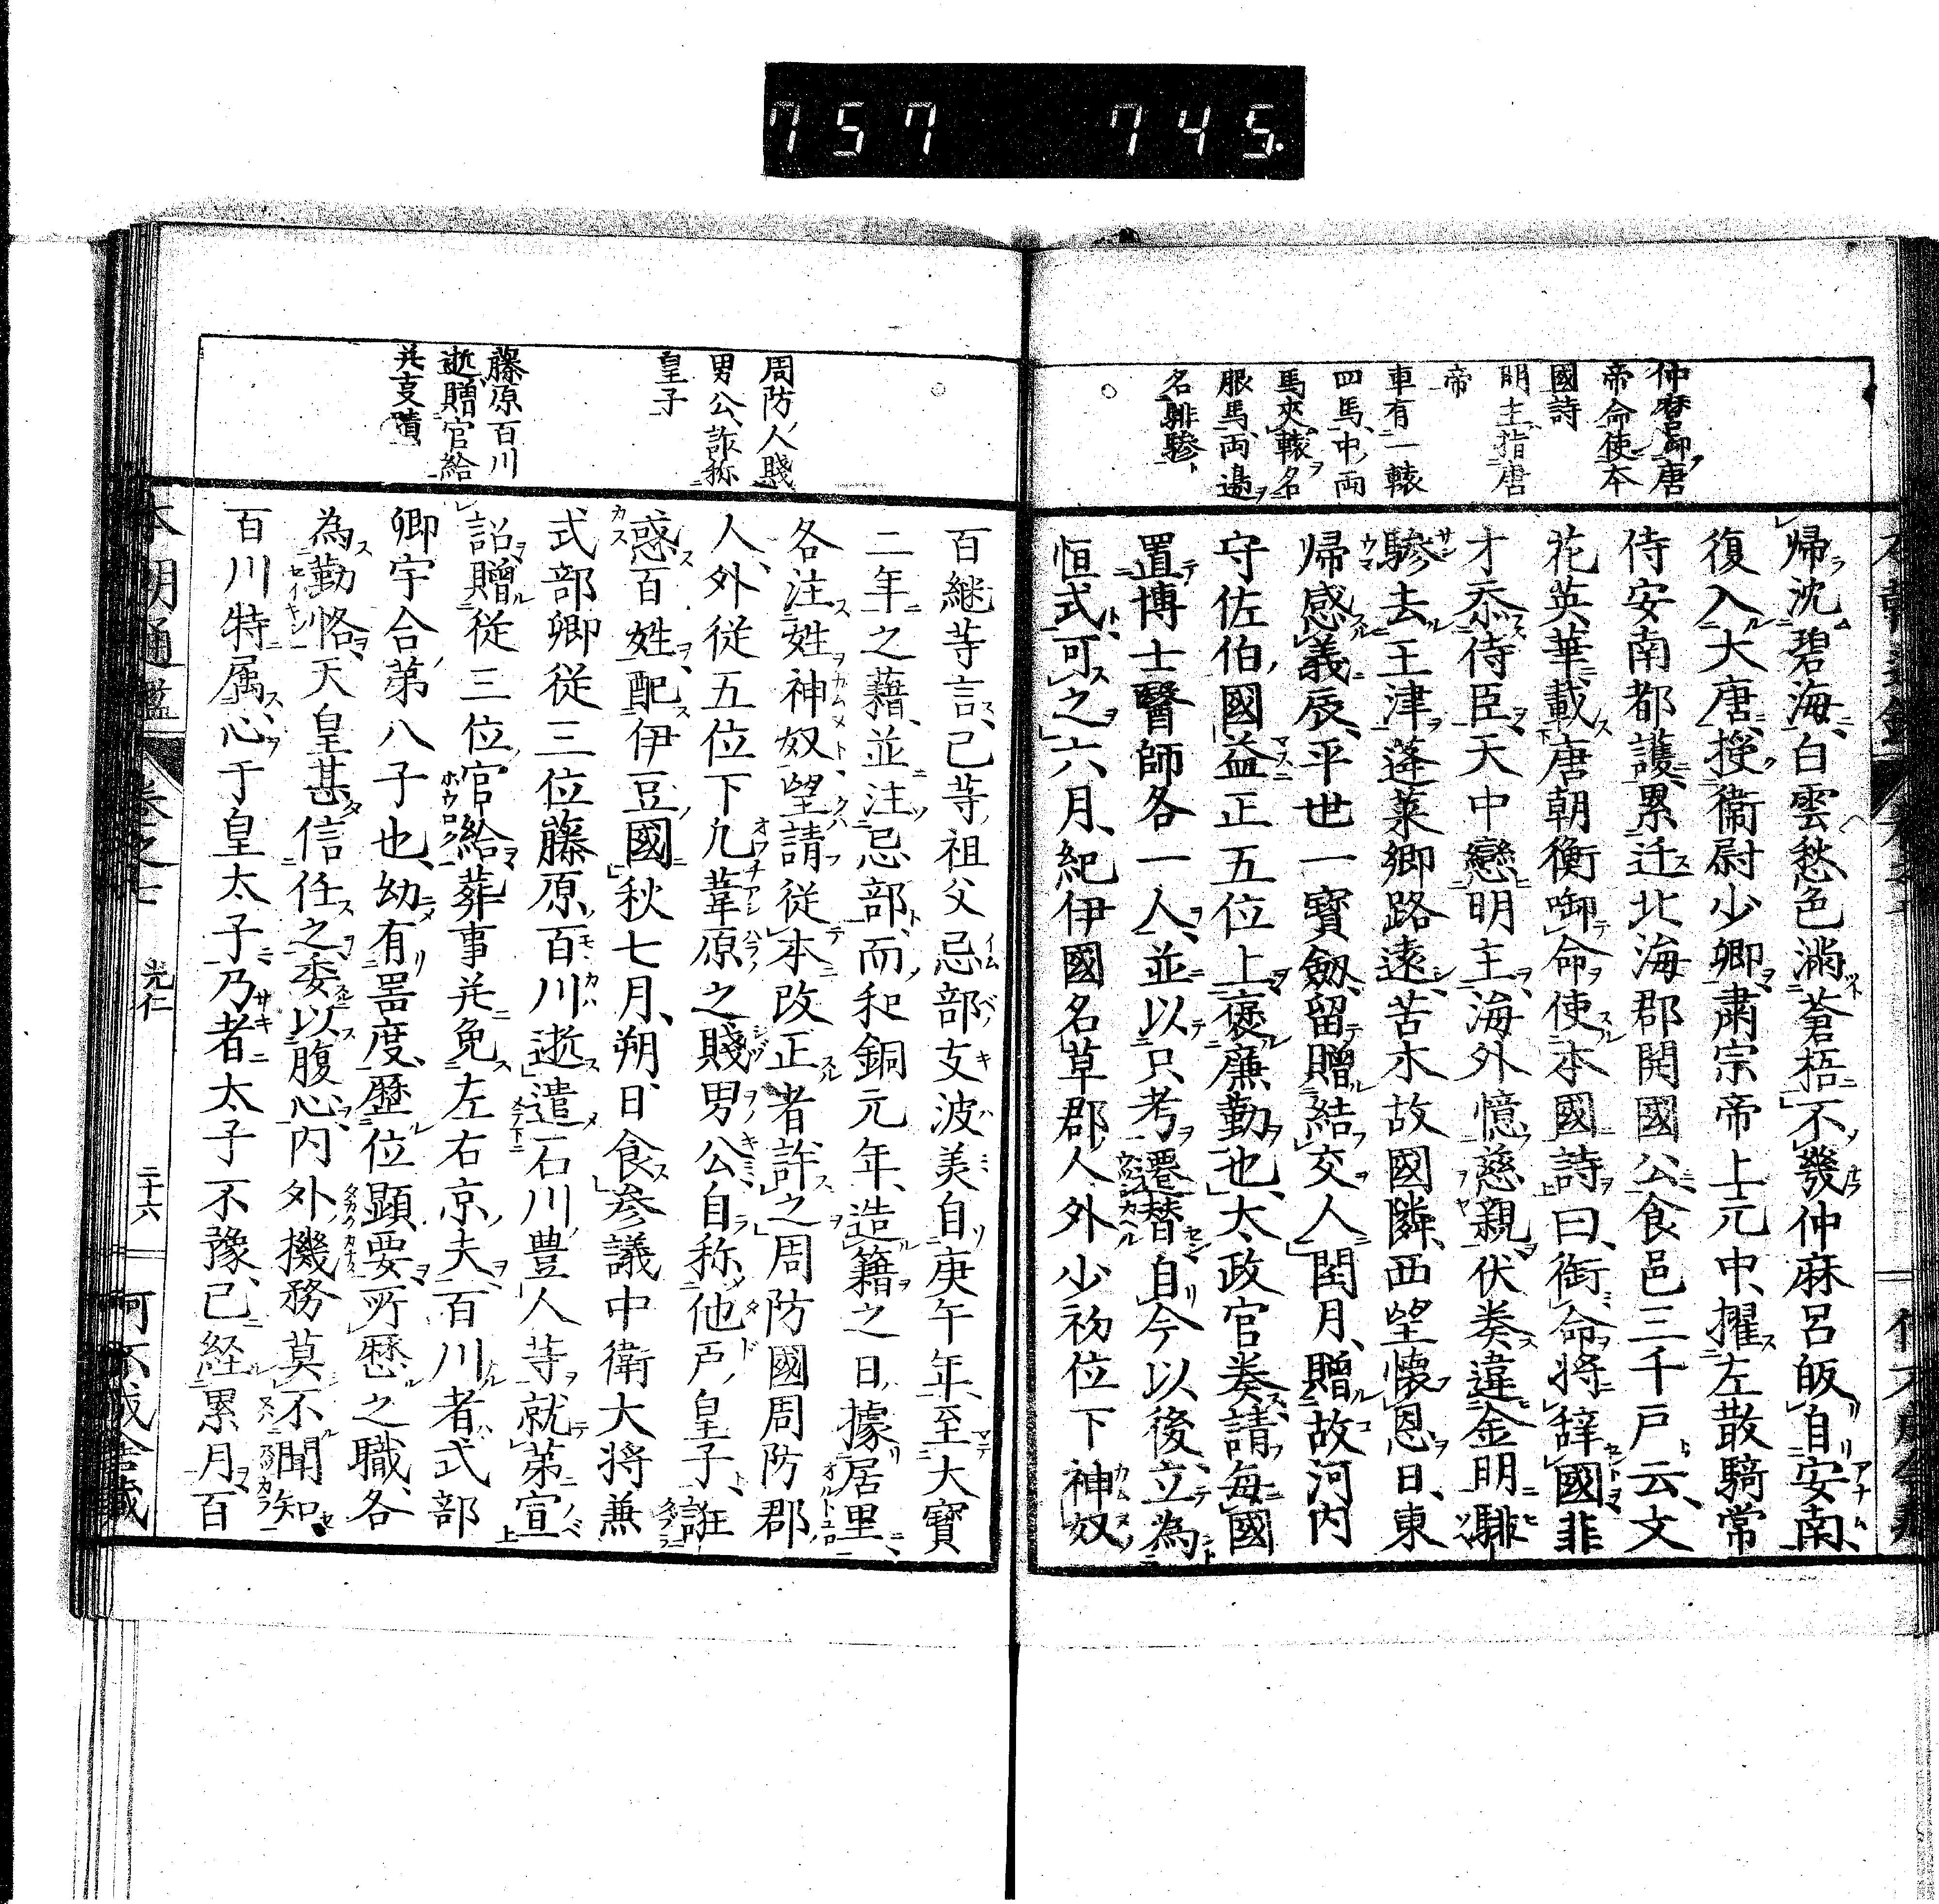 757 745.
仲麿啣唐
帝命使本
國詩
明主指唐
帝
車有一轅
四馬中両
馬夾轅名
服馬両邉
名騑驂
帰沈碧海白雲愁色満蒼梧不發仲麻呂皈自安南
復入大唐授衞尉少卿肅宗帝上元中擢左散騎常
侍安南都護累迁北海郡開國公食邑三千戸云文
花英華載唐朝衡啣命使本國詩曰銜命将辞國非
才忝侍臣天中戀明主海外憶慈親伏奏違金明騑
驂去王津蓬萊卿路遠苦木故國隣西望懐恩日東
帰感義辰平世一寶劔留贈結交人閏月贈故河内
守佐伯國益正五位上褒廉勤也太政官奏請毎國
置博士醫師各一人並以只考遷替自今以後立為
恒式可之六月紀伊國名草郡人外少初位下神奴
周防人賤
男公詐称
皇子
藤原百川
逝贈官給
并叓蹟
百継等言己等祖父忌部支波美自庚午年至大寶
二年之藉並注忌部而和銅元年造籍之日據居里
各注姓神奴望請従本改正者許之周防國周防郡
人外従五位下凢葦原之賤男公自称他戸皇子誑
惑百姓配伊豆國秋七月朔日食参議中衛大将兼
式部卿従三位藤原百川逝遣石川豊人等就第宣
詔贈従三位官給葬事并免左右京夫百川者式部
卿宇合第八子也幼有噐度歴位顕要所歴之職各
為勤恪天皇甚信任之委以腹心内外機務莫不聞知
百川特属心于皇太子乃者太子不豫已経累月百
本朝通鑑 巻之七 光仁 二十六